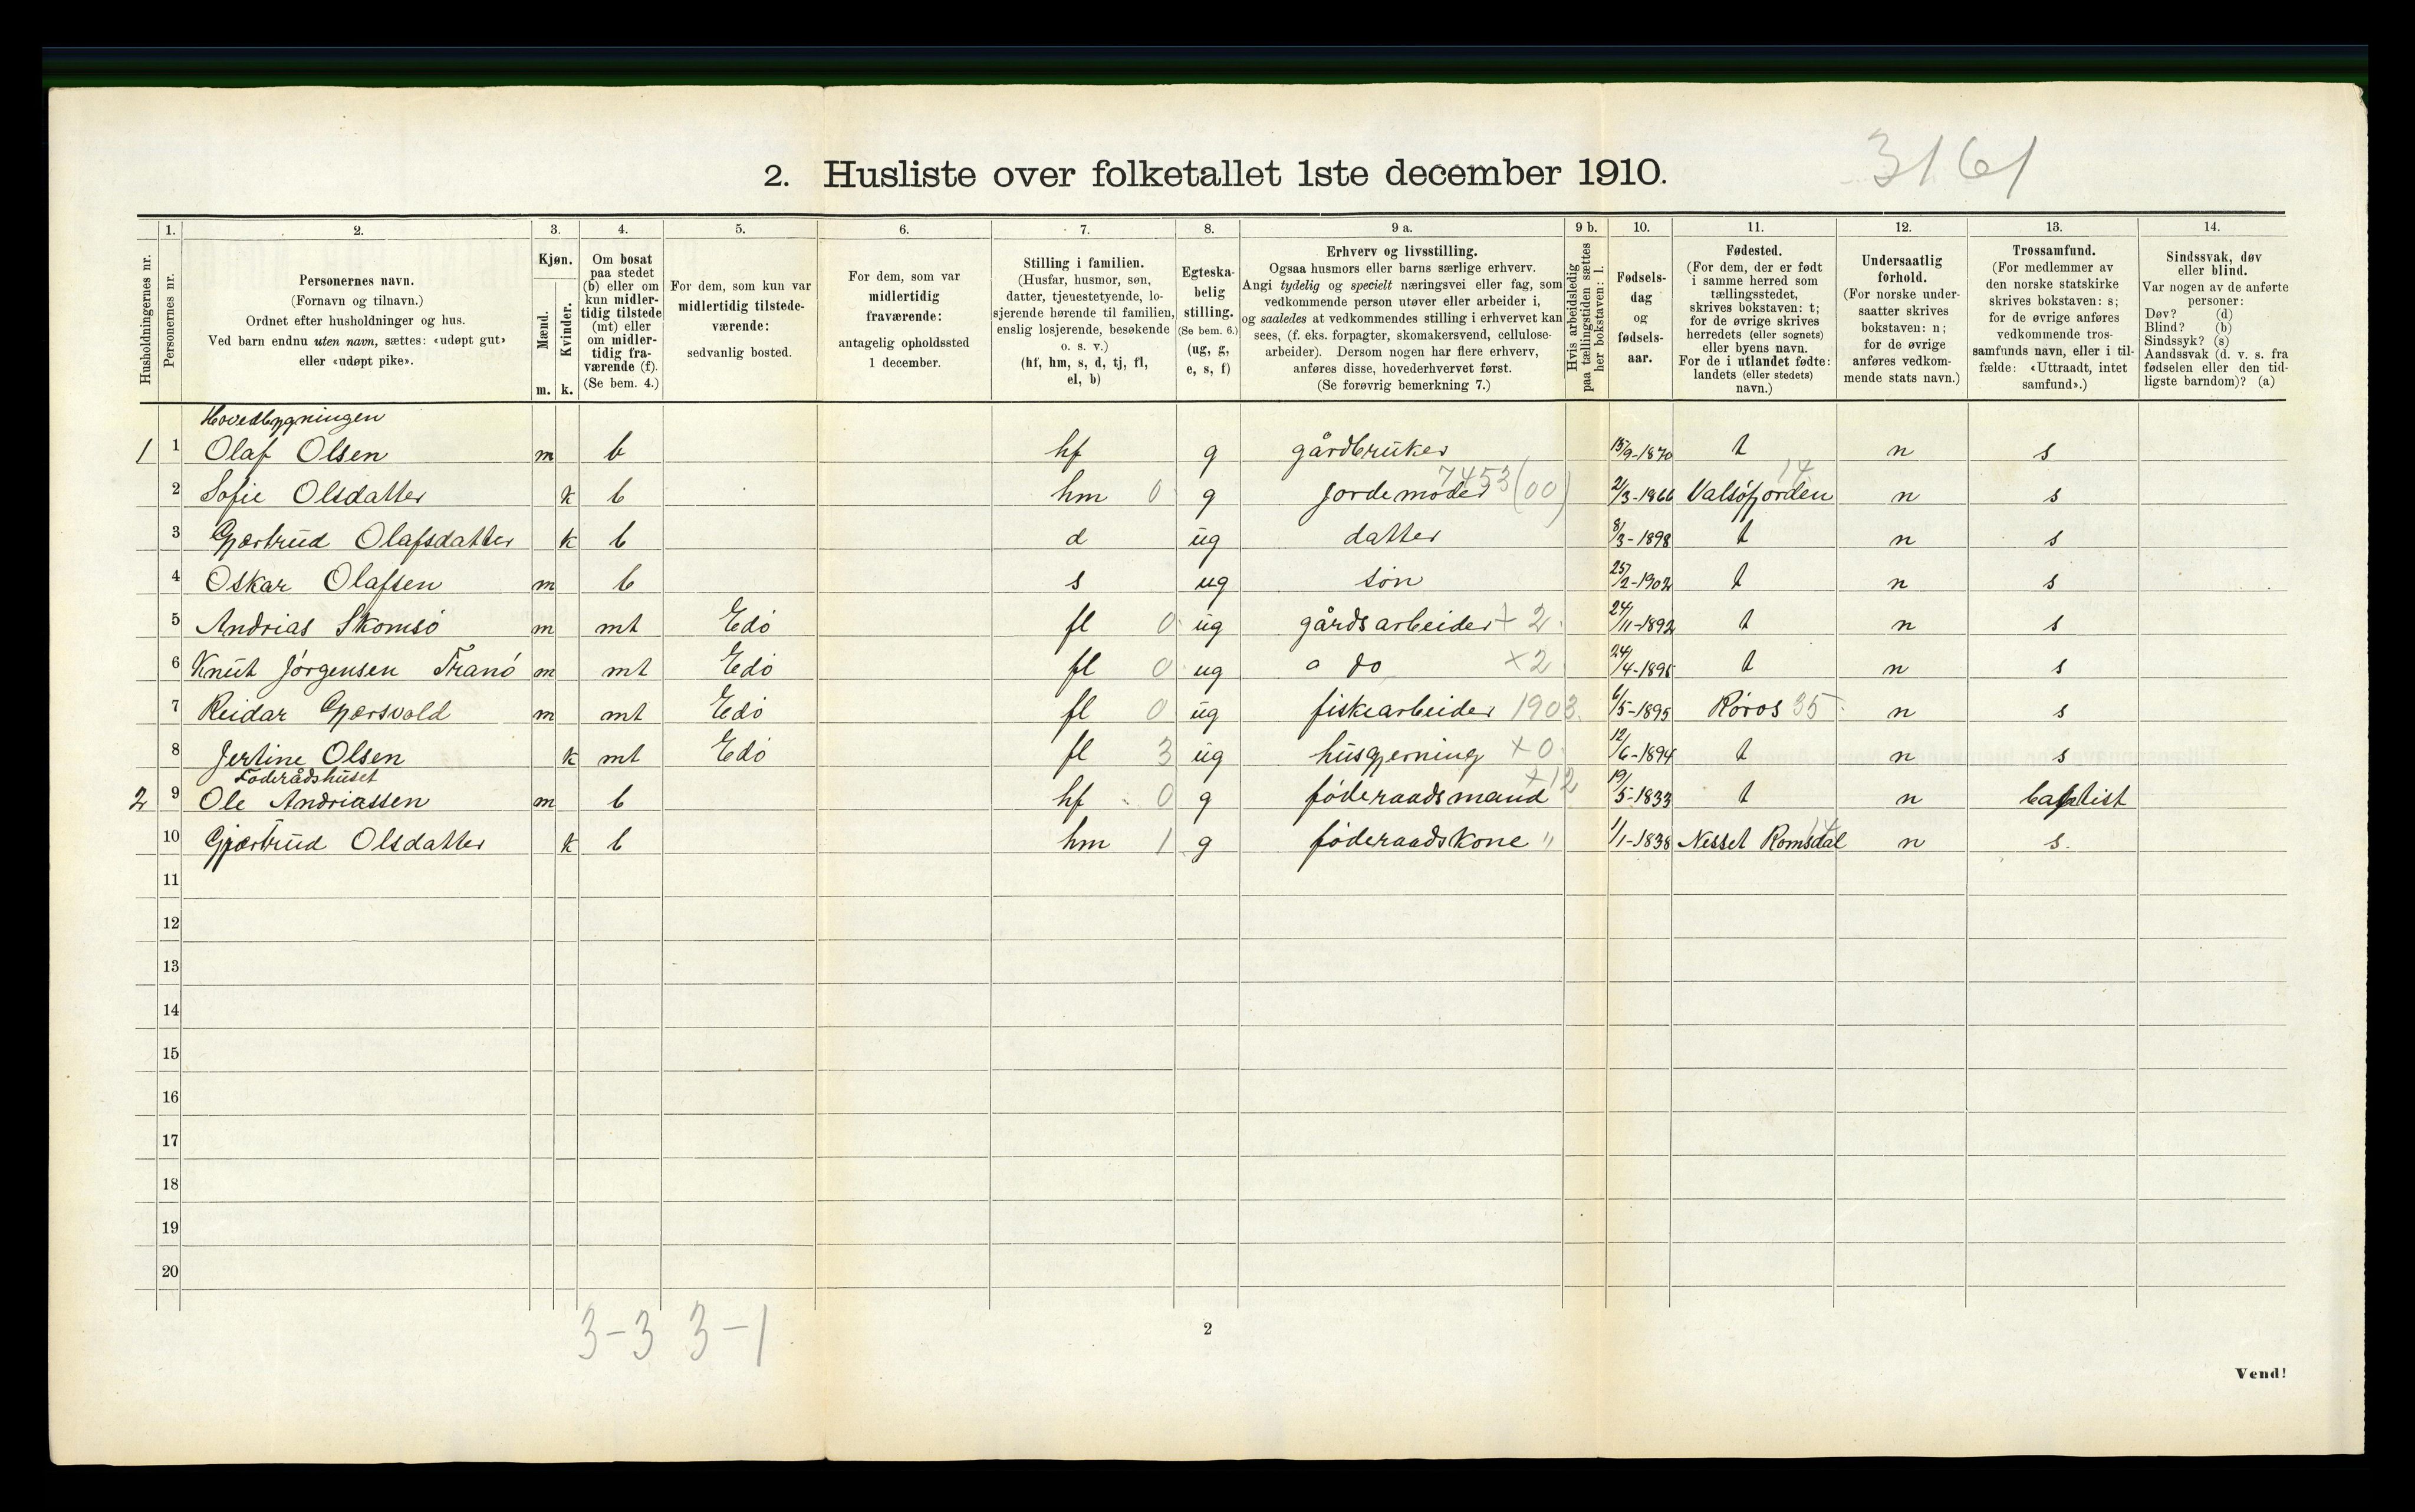 3161
2. Husliste over folketallet 1ste december 1910.
Husholdningernes nr.
1.
Personernes nr.
2.
Personernes navn.
(Fornavn og tilnavn.)
Ordnet efter husholdninger og hus.
Ved barn endnu uten navn, sættes: «udøpt gut»
eller «udøpt pike».
3.
Kjøn.
Mænd.
Kvinder.
m. k.
4.
Om bosat
paa stedet
(b) eller om
kun midler-
tidig tilstede
(mt) eller
om midler-
tidig fra-
værende (f).
(Se bem. 4.)
5.
For dem, som kun var
midlertidig tilstede-
værende:
sedvanlig bosted.
6.
For dem, som var
midlertidig
fraværende:
antagelig opholdssted
1 december.
7.
Stilling i familien.
(Husfar, husmor, søn,
datter, tjenestetyende, lo-
sjerende hørende til familien,
enslig losjerende, besøkende
o. s. v.)
(hf, hm, s, d, tj, fl,
el, b)
8.
Egteska-
belig
stilling.
(Se bem. 6.)
(ug, g,
e, s, f)
9 a.
Erhverv og livsstilling.
Ogsaa husmors eller barns særlige erhverv.
Angi tydelig og specielt næringsvei eller fag, som
vedkommende person utøver eller arbeider i,
og saaledes at vedkommendes stilling i erhvervet kan
sees, (f. eks. forpagter, skomakersvend, cellulose-
arbeider). Dersom nogen har flere erhverv,
anføres disse, hovederhvervet først.
(Se forøvrig bemerkning 7.)
9 b.
Hvis arbeidsledig
paa tællingstiden sættes
her bokstaven: l.
10.
Fødsels-
dag
og
fødsels-
aar.
11.
Fødested.
(For dem, der er født
i samme herred som
tællingsstedet,
skrives bokstaven: t;
for de øvrige skrives
herredets (eller sognets)
eller byens navn.
For de i utlandet fødte:
landets (eller stedets)
navn.)
12.
Undersaatlig
forhold.
(For norske under-
saatter skrives
bokstaven: n;
for de øvrige
anføres vedkom-
mende stats navn.)
13.
Trossamfund.
(For medlemmer av
den norske statskirke
skrives bokstaven: s;
for de øvrige anføres
vedkommende tros-
samfunds navn, eller i til-
fælde: «Uttraadt, intet
samfund».)
14.
Sindssvak, døv
eller blind.
Var nogen av de anførte
personer:
Døv? (d)
Blind? (b)
Sindssyk? (s)
Aandssvak (d. v. s. fra
fødselen eller den tid-
ligste barndom)? (a)
Hovedbygningen
1 1 Olaf Olsen m b hf g gårdbruker 15/9-1870 t n s
2 Sofie Olsdatter k b hm 0 g Jordemoder 7453 (00) 2/3-1866 Valsöfjorden 14 n s
3 Gjærtrud Olafsdatter k b d ug datter 8/3-1898 t n s
4 Oskar Olafsen m b s ug sön 25/2-1902 t n s
5 Andrias Skomsö m mt Edö fl 0 ug gårdsarbeider + 2 24/11-1892 t n s
6 Knut Jörgensen Tranö m mt Edö fl 0 ug do ×2 24/4-1895 t n s
7 Reidar Gjærsvold m mt Edö fl 0 ug fiskearbeider 1903. 6/5-1895 Röros 35 n s
8 Jertine Olsen k mt Edö fl 3 ug husgjerning ×0 12/6-1894 t n s
Föderådshuset
2 9 Ole Andriassen m b hf 0 g föderaadsmand +12 19/5-1833 t n baptist
10 Gjærtrud Olsdatter k b hm 1 g föderaadskone " 1/1-1838 Nesset Romsdal n s.
11
12
13
14
15
16
17
18
19
20
3-3 3-1
2
Vend!